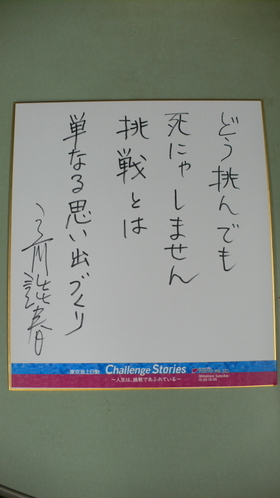 どう挑んでも
死にゃしません
挑戦とは
単なる思い出づくり
東京海上日動 Challenge Stories
～人生は、挑戦であふれている～